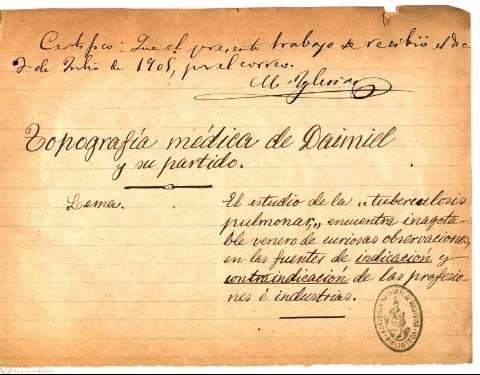 Certifico: Que el presente trabajo se recibió el día
2 de Julio de 1905, por el correo.
M. Iglesias
Topografía médica de Daimiel
y su partido.
Lema.
El estudio de la „tuberculosis
pulmonar„ encuentra inagota-
ble venero de curiosas observaciones,
en las fuentes de indicación y
contraindicación de las profesio-
nes é industrias.
BIBLIOTECA